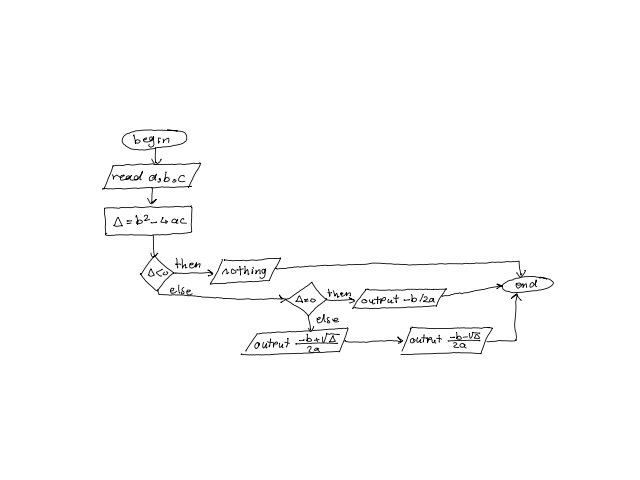 begin
read a,b,c
Δ = b² - 4ac
Δ<0
then
nothing
else
Δ=0
then
output -b/2a
end
else
output (-b+√Δ)/2a
output (-b-√Δ)/2a